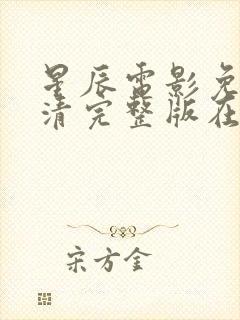 星辰电影免
清完整版在
宋方金